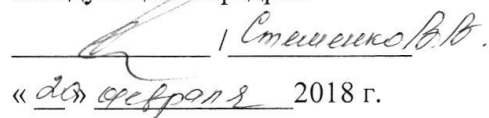 / Стешенко В.В.
« 20 » февраля 2018 г.